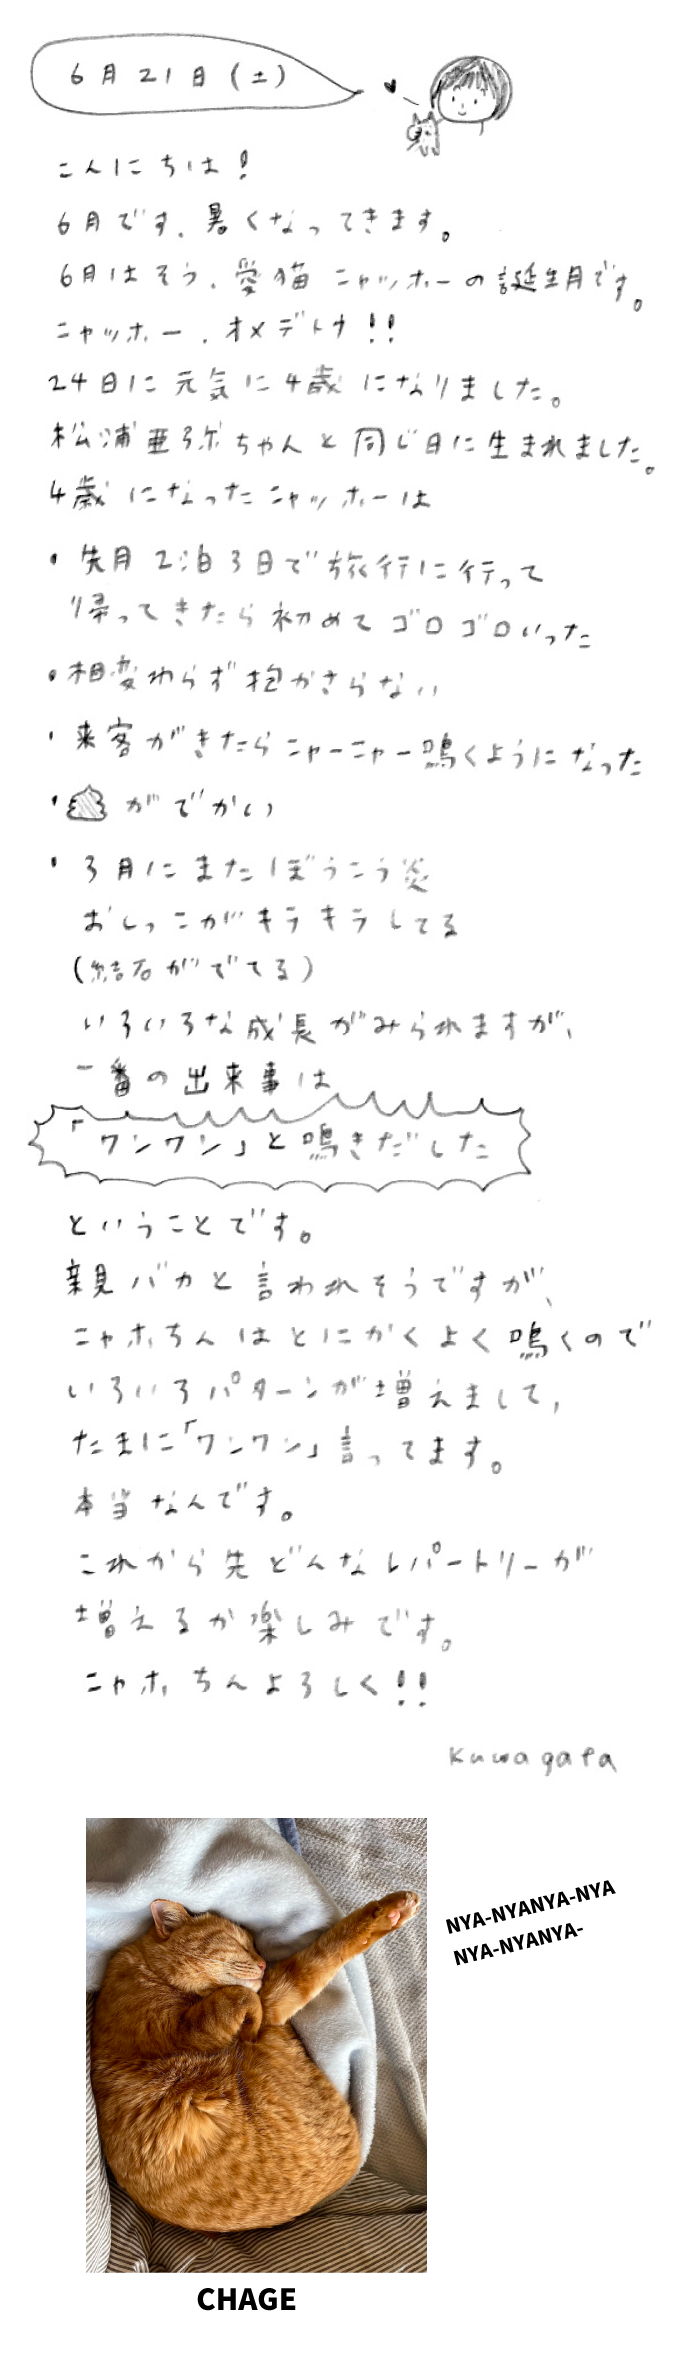 6月21日(土)
こんにちは!
6月です、暑くなってきます。
6月はそう、愛猫 ニャッホーの誕生月です。
ニャッホー、オメデトウ!!
24日に元気に4歳になりました。
松浦亜弥ちゃんと同じ日に生まれました。
4歳になったニャッホーは
・先月2泊3日で旅行に行って
帰ってきたら初めてゴロゴロいった
・相変わらず抱かさらない
・来客がきたらニャーニャー鳴くようになった
・ がでかい
・3月にまたぼうこう炎
おしっこがキラキラしてる
(結石がでてる)
いろいろな成長がみられますが、
一番の出来事は
「ワンワン」と鳴きだした
ということです。
親バカと言われそうですが、
ニャホちんはとにかくよく鳴くので
いろいろパターンが増えまして、
たまに「ワンワン」言ってます。
本当なんです。
これから先どんなレパートリーが
増えるか楽しみです。
ニャホちんよろしく!!
Kuwagata
NYA-NYANYA-NYA
NYA-NYANYA-
CHAGE